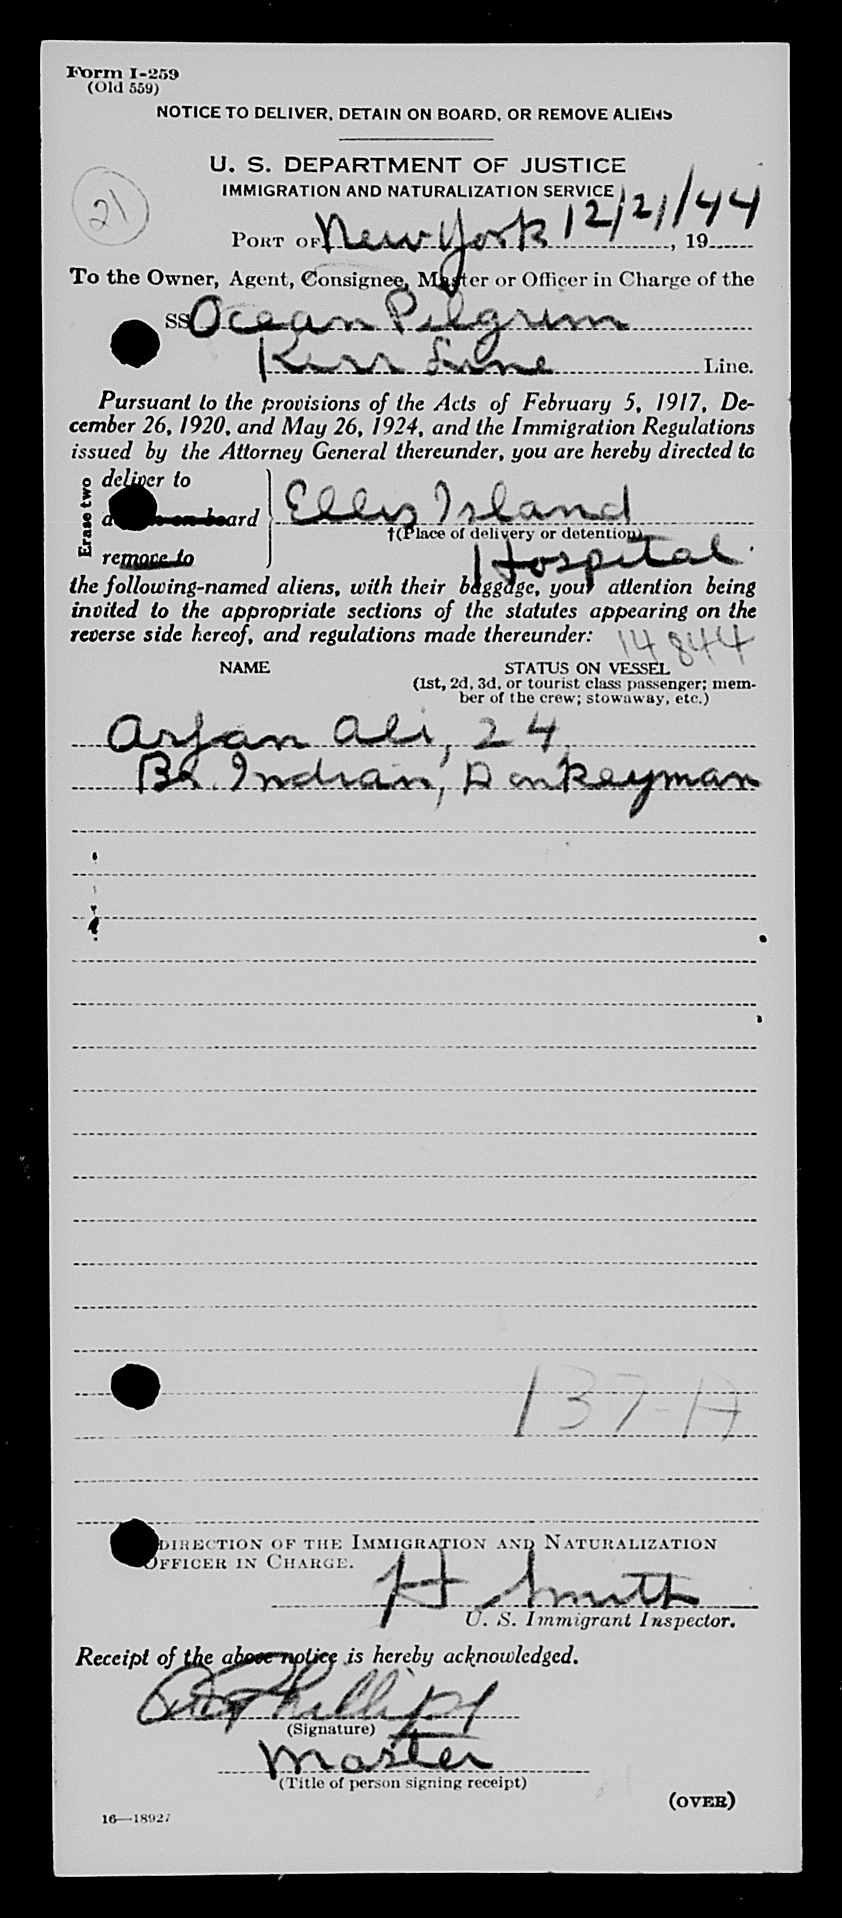 Form I-259
(Old 559)
NOTICE TO DELIVER, DETAIN ON BOARD, OR REMOVE ALIENS
U. S. DEPARTMENT OF JUSTICE
IMMIGRATION AND NATURALIZATION SERVICE
21
PORT OF New York 12/21/44, 19
To the Owner, Agent, Consignee, Master or Officer in Charge of the
SS Ocean Pilgrim
Kerr Line Line.
Pursuant to the provisions of the Acts of February 5, 1917, De-
cember 26, 1920, and May 26, 1924, and the Immigration Regulations
issued by the Attorney General thereunder, you are hereby directed to
Erase two
deliver to
on board
remove to
Ellis Island
†(Place of delivery or detention)
Hospital.
the following-named aliens, with their baggage, your attention being
invited to the appropriate sections of the statutes appearing on the
reverse side hereof, and regulations made thereunder:
14844
NAME STATUS ON VESSEL
(1st, 2d, 3d, or tourist class passenger; mem-
ber of the crew; stowaway, etc.)
Arfan Ali, 24,
Br. Indian, Donkeyman
137-A
DIRECTION OF THE IMMIGRATION AND NATURALIZATION
OFFICER IN CHARGE.
H Smith
U. S. Immigrant Inspector.
Receipt of the above notice is hereby acknowledged.
Phillips
(Signature)
Master
(Title of person signing receipt)
(OVER)
16—18927